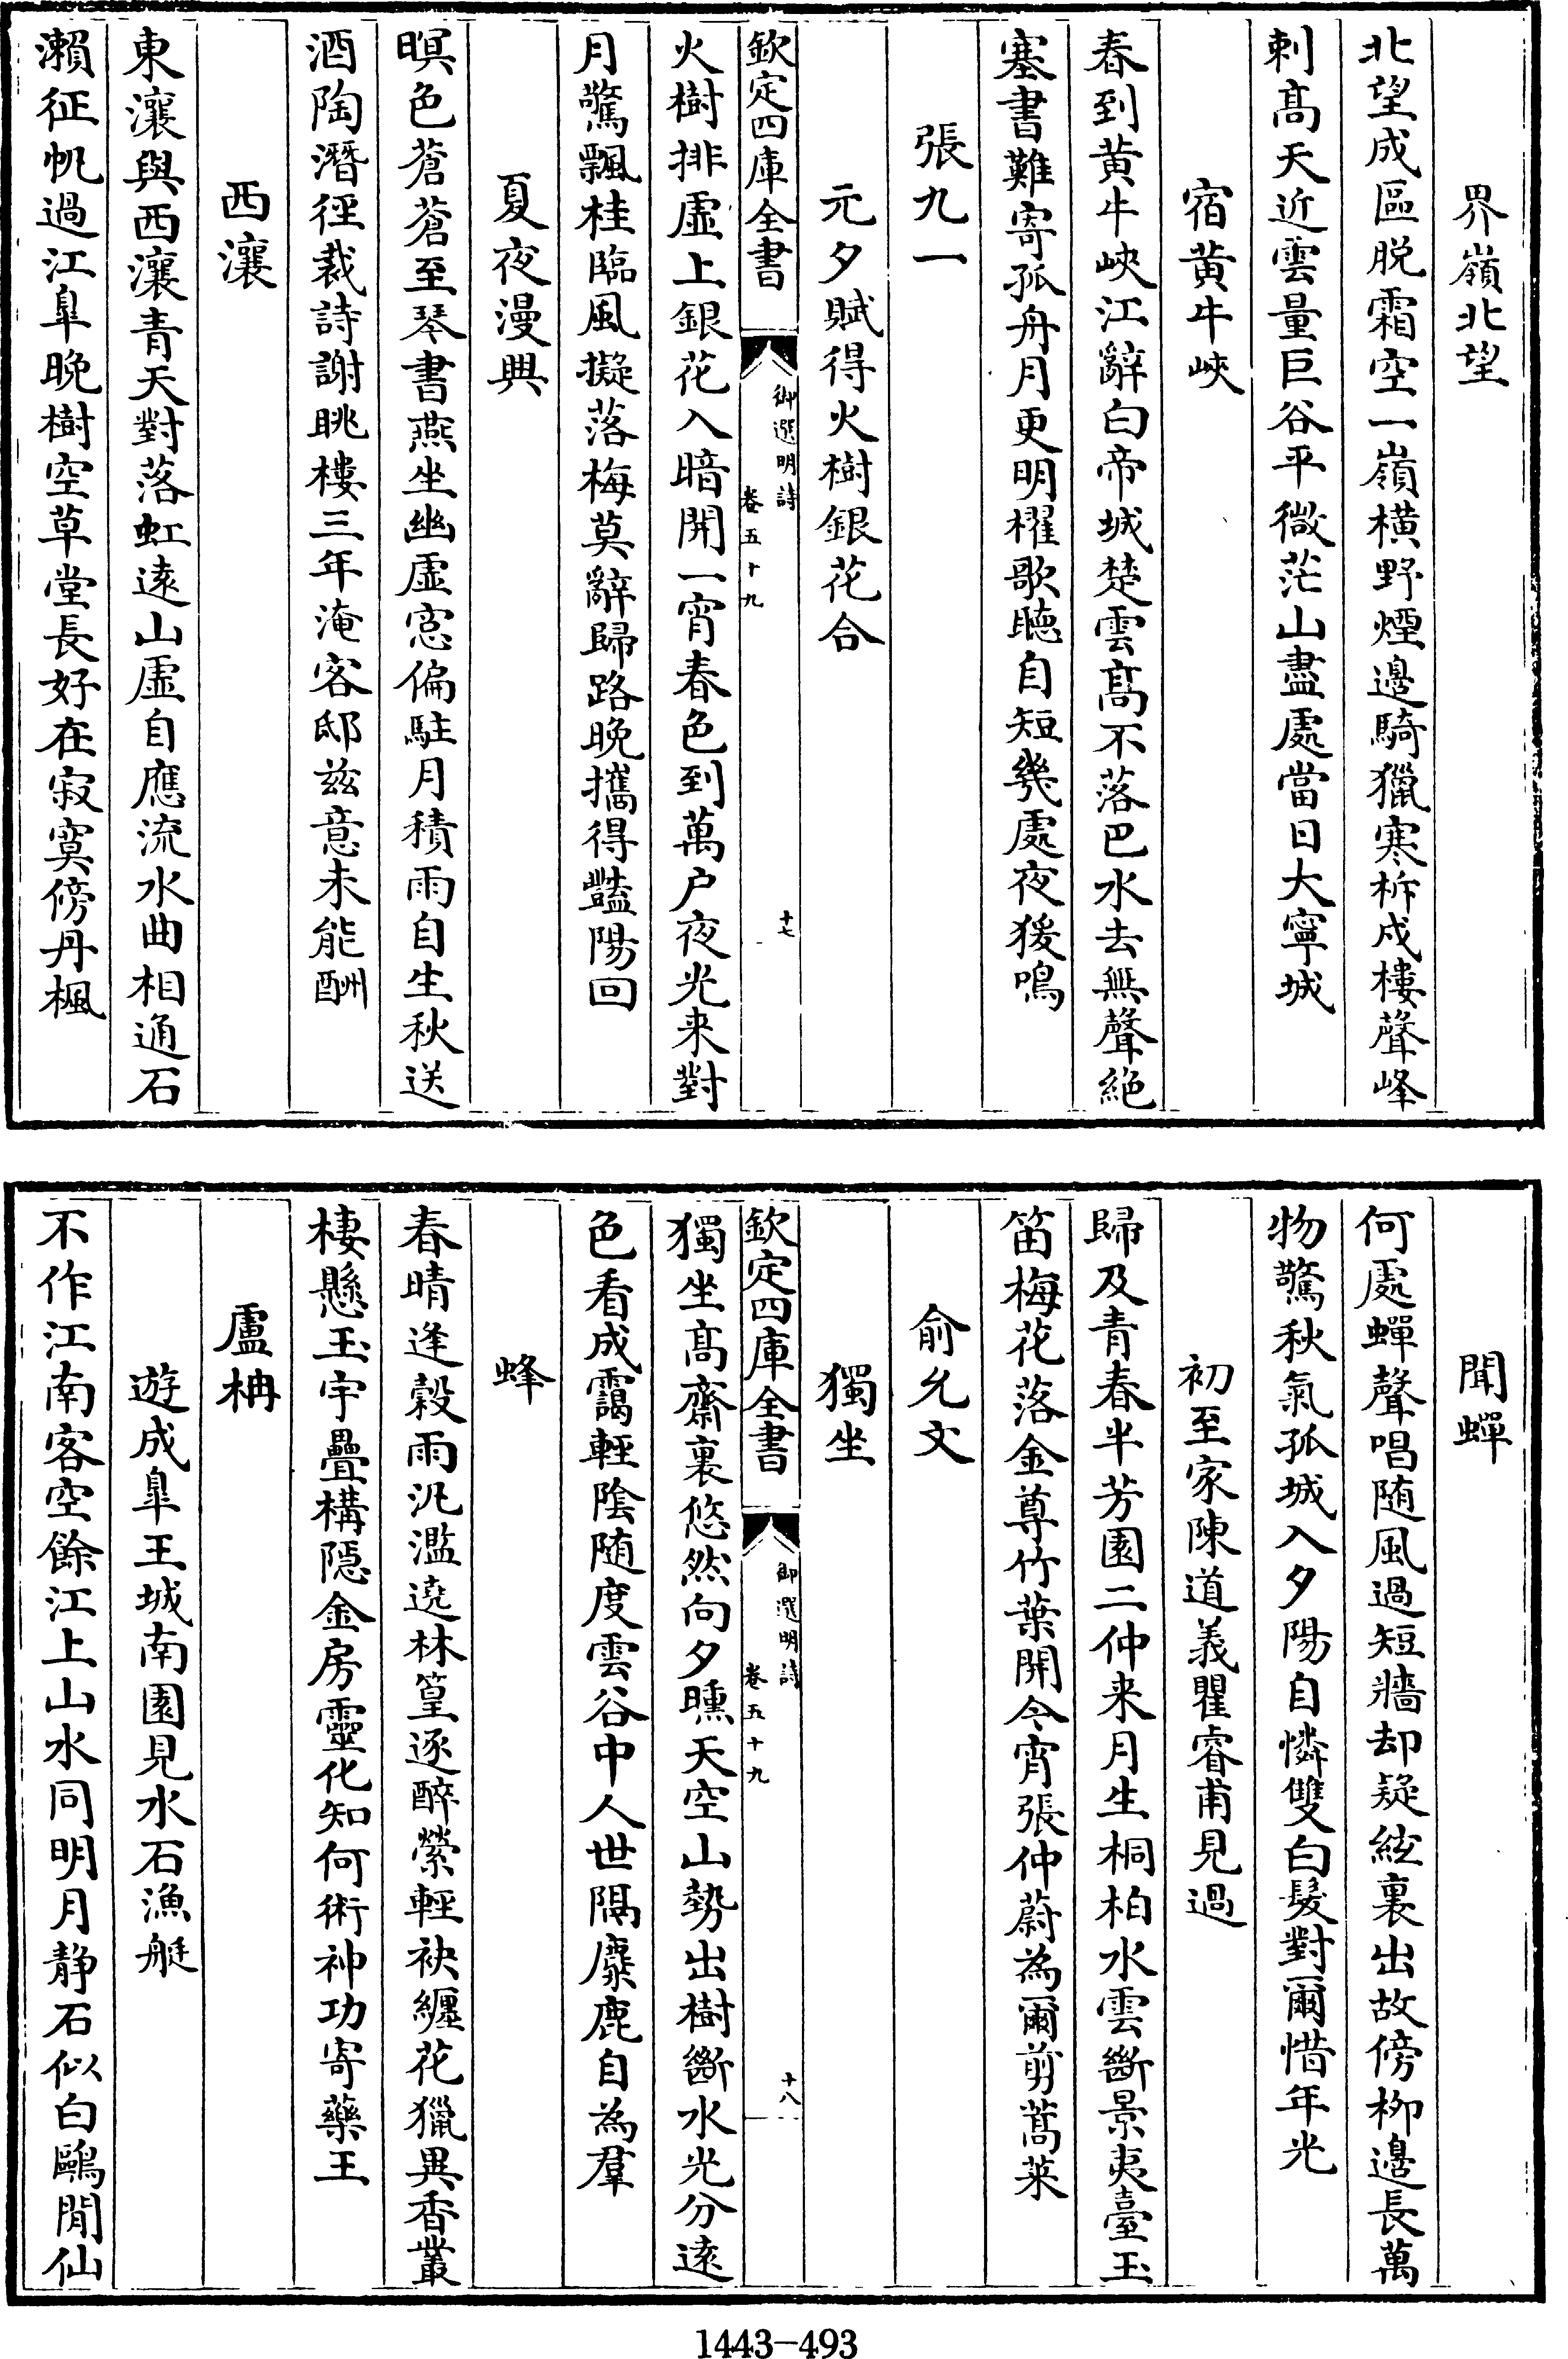 界嶺北望
北望成區脱霜空一嶺横野煙邊騎獵寒柝戍樓聲峰
刺髙天近雲量巨谷平微茫山盡處當日大寧城
宿黄牛峽
春到黄牛峽江辭白帝城楚雲髙不落巴水去無聲絶
塞書難寄孤舟月更明櫂歌聴自短幾處夜猨鳴
張九一
元夕賦得火樹銀花合
欽定四庫全書
御選明詩
卷五十九
十七
火樹排虚上銀花入暗開一宵春色到萬户夜光来對
月驚飄桂臨風擬落梅莫辭歸路晚攜得豔陽回
夏夜漫興
暝色蒼蒼至琴書燕坐幽虚窓偏駐月積雨自生秋送
酒陶潛徑裁詩謝眺樓三年淹客邸兹意未能酬
西瀼
東瀼與西瀼青天對落虹逺山虚自應流水曲相通石
瀨征帆過江臯晚樹空草堂長好在寂寞傍丹楓
聞蟬
何處蟬聲唱随風過短牆却疑絃裏出故傍柳邊長萬
物驚秋氣孤城入夕陽自憐雙白髮對爾惜年光
初至家陳道義瞿睿甫見過
歸及青春半芳園二仲来月生桐柏水雲斷景夷臺玉
笛梅花落金尊竹葉開今宵張仲蔚為爾剪蒿萊
俞允文
獨坐
欽定四庫全書
御選明詩
卷五十九
十八
獨坐髙齋裏悠然向夕曛天空山勢出樹斷水光分逺
色看成靄輕陰随度雲谷中人世隔麋鹿自為羣
蜂
春晴逢榖雨汎濫遶林篁逐醉縈輕袂纒花獵異香叢
棲懸玉宇疊構隠金房靈化知何術神功寄藥王
盧柟
遊成臯王城南園見水石漁艇
不作江南客空餘江上山水同明月静石似白鷗閒仙
1443-493